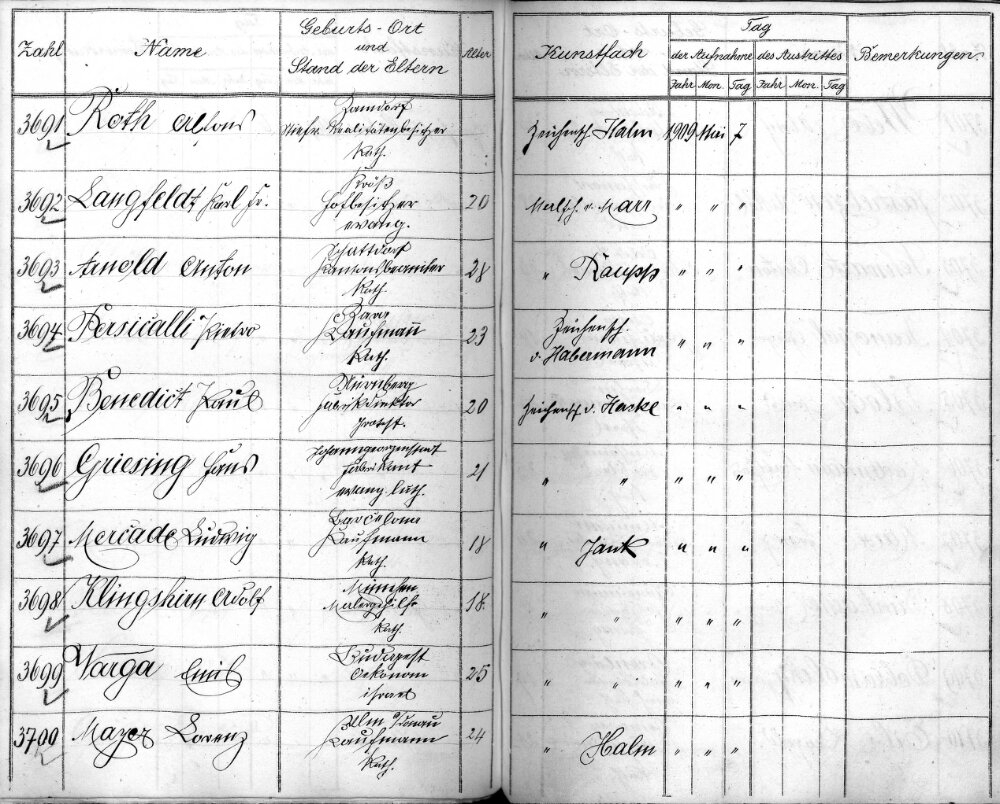 Zahl Name Geburts-Ort und Stand der Eltern Alter Kunstfach Tag der Aufnahme des Austrittes Bemerkungen.
Jahr Mon. Tag Jahr Mon. Tag
3691 Roth Alfons
Realitätenbesitzer
Kath.
Zeichensch. Halm 1909 Mai 7
3692 Langfeldt Karl Fr.
Hofbesitzer
evang.
20 Malsch. v. Marr " " "
3693 Arnold Anton
Schattdorf
Kantonsbeamter
Kath.
28 " Raupp " " "
3694 Persicalli Pietro
Zara
Kaufmann
Kath.
23 Zeichensch.
v. Habermann " " "
3695 Benedict Paul
Nürnberg
Fabrikdirektor
Protest.
20 Zeichensch v. Hackl " " "
3696 Griesing Hans
Johanngeorgenstadt
Fabrikant
evang. luth.
21 " " " " "
3697 Mercade Ludwig
Barcelona
Kaufmann
Kath.
18 " Jank " " "
3698 Klingshirn Adolf
München
Malergehilfe
Kath.
18. " " " " "
3699 Varga Emil
Budapest
Oekonom
israel
25 " " " " "
3700 Mayer Lorenz
Ulm a/Donau
Kaufmann
Kath.
24 " Halm " " "